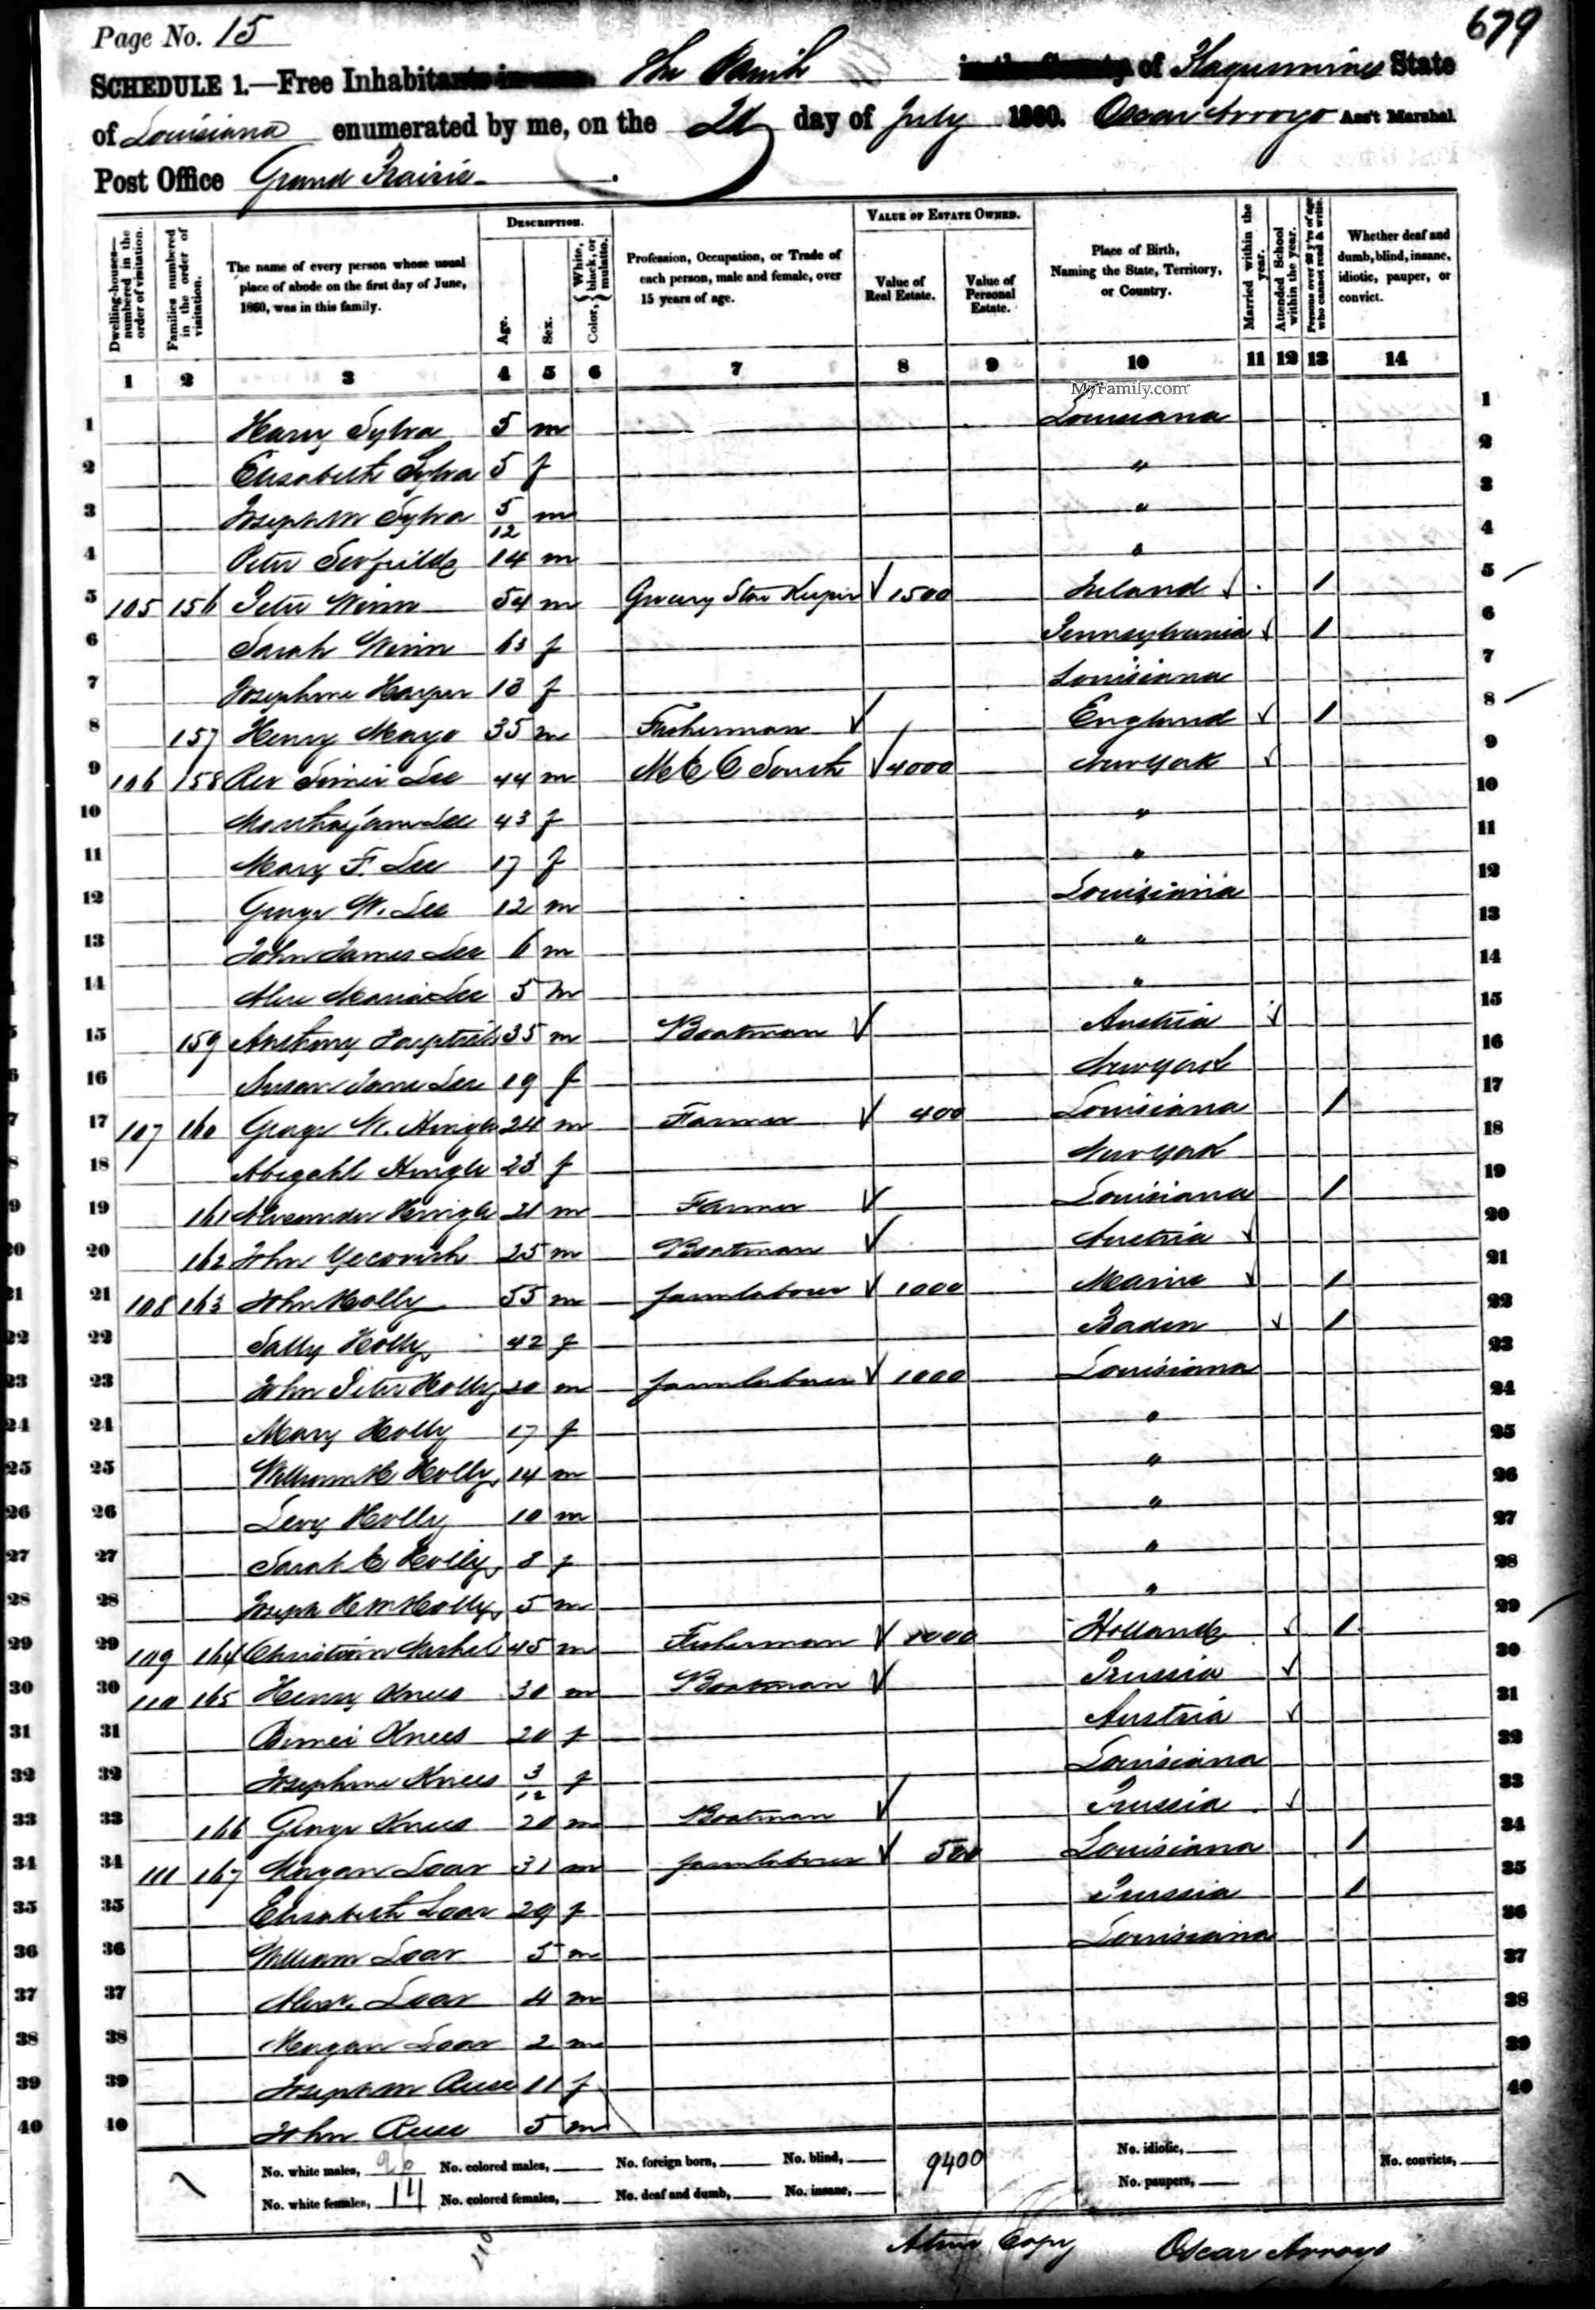 679
Page No. 15
SCHEDULE 1.—Free Inhabitants in The Parish in the County of Plaquemines State
of Louisiana enumerated by me, on the day of July 1860. Oscar Arroyo Ass't Marshal.
Post Office Grand Prairie
Dwelling-houses—numbered in the order of visitation.
Families numbered in the order of visitation.
The name of every person whose usual place of abode on the first day of June, 1860, was in this family.
DESCRIPTION.
Age.
Sex.
Color, { White, black, or mulatto.
Profession, Occupation, or Trade of each person, male and female, over 15 years of age.
VALUE OF ESTATE OWNED.
Value of Real Estate.
Value of Personal Estate.
Place of Birth, Naming the State, Territory, or Country.
Married within the year.
Attended School within the year.
Persons over 20 y'rs of age who cannot read & write.
Whether deaf and dumb, blind, insane, idiotic, pauper, or convict.
1 2 3 4 5 6 7 8 9 10 11 12 13 14
MyFamily.com
1 Harry Sylva 5 m Louisiana 1
2 Elisabeth Sylva 5 f " 2
3 Joseph M Sylva 5/12 m " 3
4 Peter 14 m " 4
5 105 156 Peter Winn 54 m Grocery Store Keeper 1500 Ireland 1 5
6 Sarah Winn 63 f Pennsylvania 1 6
7 Josephine Harper 13 f Louisiana 7
8 157 Henry Mayo 35 m Fisherman England 1 8
9 106 158 Rev Lee 44 m M E C South 4000 New York 9
10 Martha Jane Lee 43 f " 10
11 Mary F. Lee 17 f " 11
12 George W. Lee 12 m Louisiana 12
13 John James Lee 6 m " 13
14 Alice Maria Lee 5 m " 14
15 159 Anthony 35 m Boatman Austria 15
16 Susan Jane Lee 19 f New York 16
17 107 160 George W. Hingle 24 m Farmer 400 Louisiana 1 17
18 Abegahl Hingle 23 f New York 18
19 161 Alexander Hingle 21 m Farmer Louisiana 1 19
20 162 John Yecovich 25 m Boatman Austria 20
21 108 163 John Holly 55 m farm laborer 1000 Maine 1 21
22 Sally Holly 42 f Baden 1 22
23 John Peter Holly 20 m farm laborer 1000 Louisiana 23
24 Mary Holly 17 f " 24
25 William H Holly 14 m " 25
26 Levy Holly 10 m " 26
27 Sarah E Holly 8 f " 27
28 Joseph H M Holly 5 m " 28
29 109 164 Christian 45 m Fisherman 1000 Holland 1 29
30 110 165 Henry Knees 30 m Boatman Prussia 30
31 Knees 20 f Austria 31
32 Josephine Knees 3/12 f Louisiana 32
33 166 George Knees 20 m Boatman Prussia 33
34 111 167 Morgan Loar 31 m farm laborer 500 Louisiana 1 34
35 Elisabeth Loar 29 f Prussia 1 35
36 William Loar 5 m Louisiana 36
37 Loar 4 m 37
38 Morgan Loar 2 m 38
39 11 f 39
40 John 5 m 40
No. white males, 26 No. colored males, No. foreign born, No. blind, 9400 No. idiotic, No. convicts,
No. white females, 14 No. colored females, No. deaf and dumb, No. insane, No. paupers,
A true Copy Oscar Arroyo